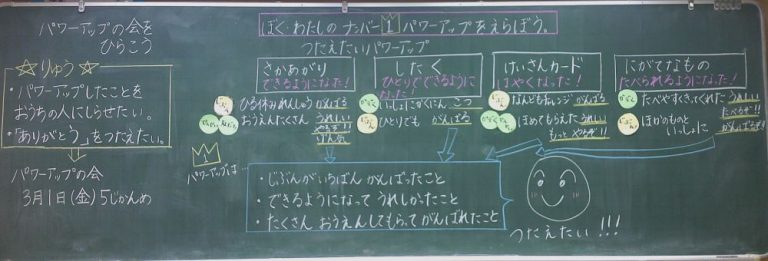 パワーアップの会を
ひらこう
☆りゅう☆
・パワーアップしたことを
おうちの人にしらせたい。
・「ありがとう」をつたえたい。
パワーアップの会
3月1日(金)5じかんめ
ぼく・わたしの ナンバー1 パワーアップをえらぼう。
つたえたいパワーアップ
さかあがり
できるようになった!
ひる休みれんしゅう がんばる
おうえんたくさん うれしい
やるぞ!!
したく
ひとりでできるように
なった!
ひとりでも がんばる
けいさんカード
はやくなった!
なんどもちょうせん がんばる
ほめてもらえた うれしい
もっと やるぞ!!
にがてなもの
たべられるようになった!
たべやすくさくてくれた うれしい
たべるぞ!!
ほかのものと
いっしょに がんばるぞ!!
1
パワーアップは…
・じぶんがいちばん がんばったこと
・できるようになって うれしかったこと
・たくさん おうえんしてもらって がんばれたこと
つたえたい!!!